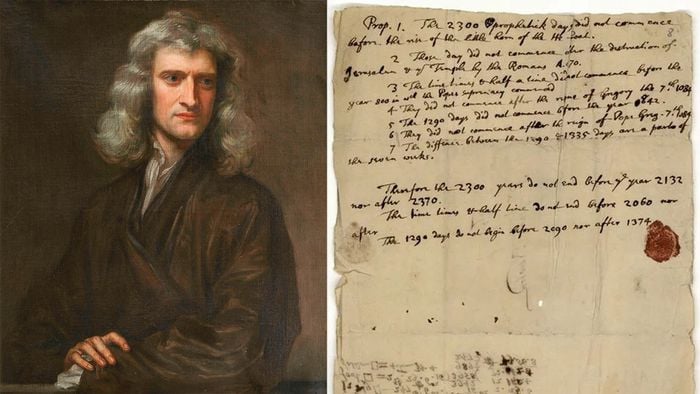 Prop. 1. The 2300 prophetick days did not commence
before the rise of the little horn of the He Goat.
2 Those day did not commence after the destruction of
Jerusalem & yͤ Temple by the Romans A. 70.
3 The time times & half a time did not commence before the
year 800 in wͨͪ the Popes supremacy commenced
4 They did not commence after the reigne of Gregory the 7ᵗʰ 1084
5 The 1290 days did not commence before the year 842.
6 They did not commence after the reign of Pope Greg. 7ᵗʰ 1084
7 The diffence between the 1290 & 1335 days are a parts of
the seven weeks.
Therfore the 2300 years do not end before yͤ year 2132
nor after 2370.
The time times & half time do not end before 2060 nor
after
The 1290 days do not begin before 2090 nor after 1374
8